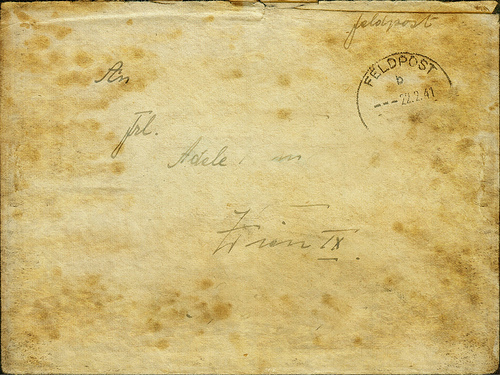 feldpost
FELDPOST
b
---22.2.41
An
Frl.
Adele
Wien IX.